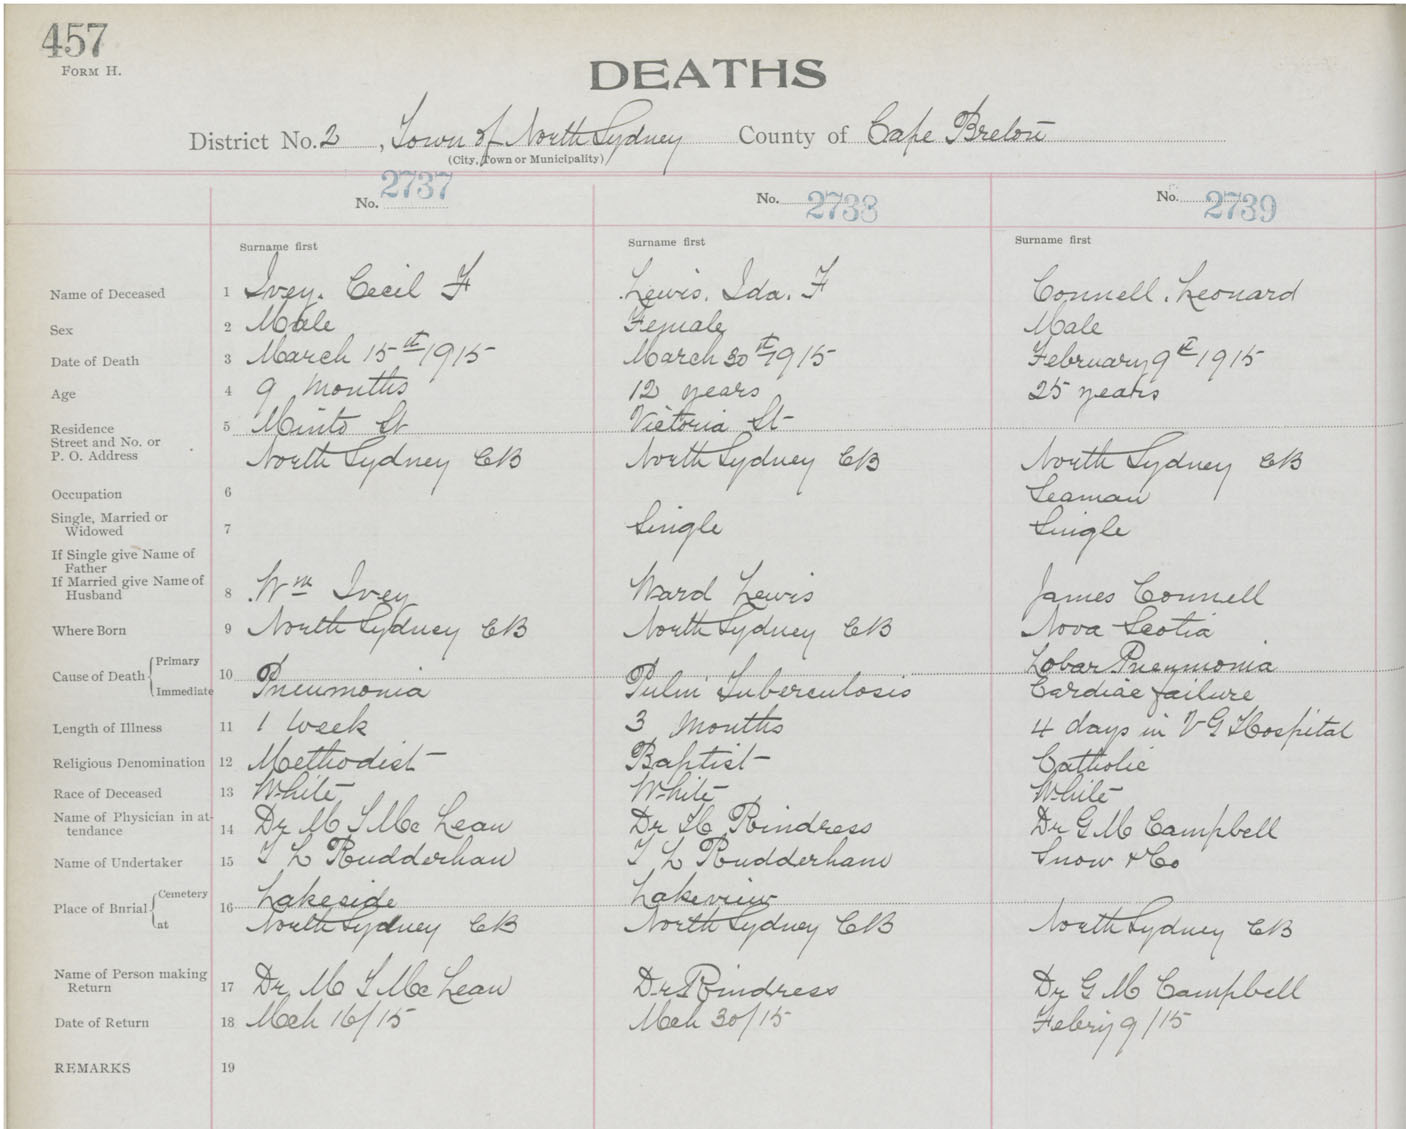 457
FORM H.
DEATHS
District No. 2, Town of North Sydney County of Cape Breton
(City, Town or Municipality)
No. 2737 No. 2738 No. 2739
Surname first Surname first Surname first
Name of Deceased 1 Ivey. Cecil F Lewis. Ida. F Connell. Leonard
Sex 2 Male Female Male
Date of Death 3 March 15th 1915 March 30th 1915 February 9th 1915
Age 4 9 months 12 years 25 years
Residence 5 Minto St Victoria St
Street and No. or
P. O. Address North Sydney CB North Sydney CB North Sydney CB
Occupation 6 Seaman
Single, Married or
Widowed 7 Single Single
If Single give Name of
Father
If Married give Name of
Husband 8 Wm Ivey Ward Lewis James Connell
Where Born 9 North Sydney CB North Sydney CB Nova Scotia
Cause of Death Primary 10 Lobar Pneumonia
Immediate Pneumonia Pulm Tuberculosis Cardiac failure
Length of Illness 11 1 week 3 months 4 days in V G Hospital
Religious Denomination 12 Methodist Baptist Catholic
Race of Deceased 13 White White White
Name of Physician in at-
tendance 14 Dr M T McLean Dr H Rindress Dr G M Campbell
Name of Undertaker 15 T L Rudderham T L Rudderham Snow & Co
Place of Burial Cemetery 16 Lakeside Lakeview
at North Sydney CB North Sydney CB North Sydney CB
Name of Person making
Return 17 Dr M T McLean Dr Rindress Dr G M Campbell
Date of Return 18 Mch 16/15 Mch 30/15 Febry 9/15
REMARKS 19